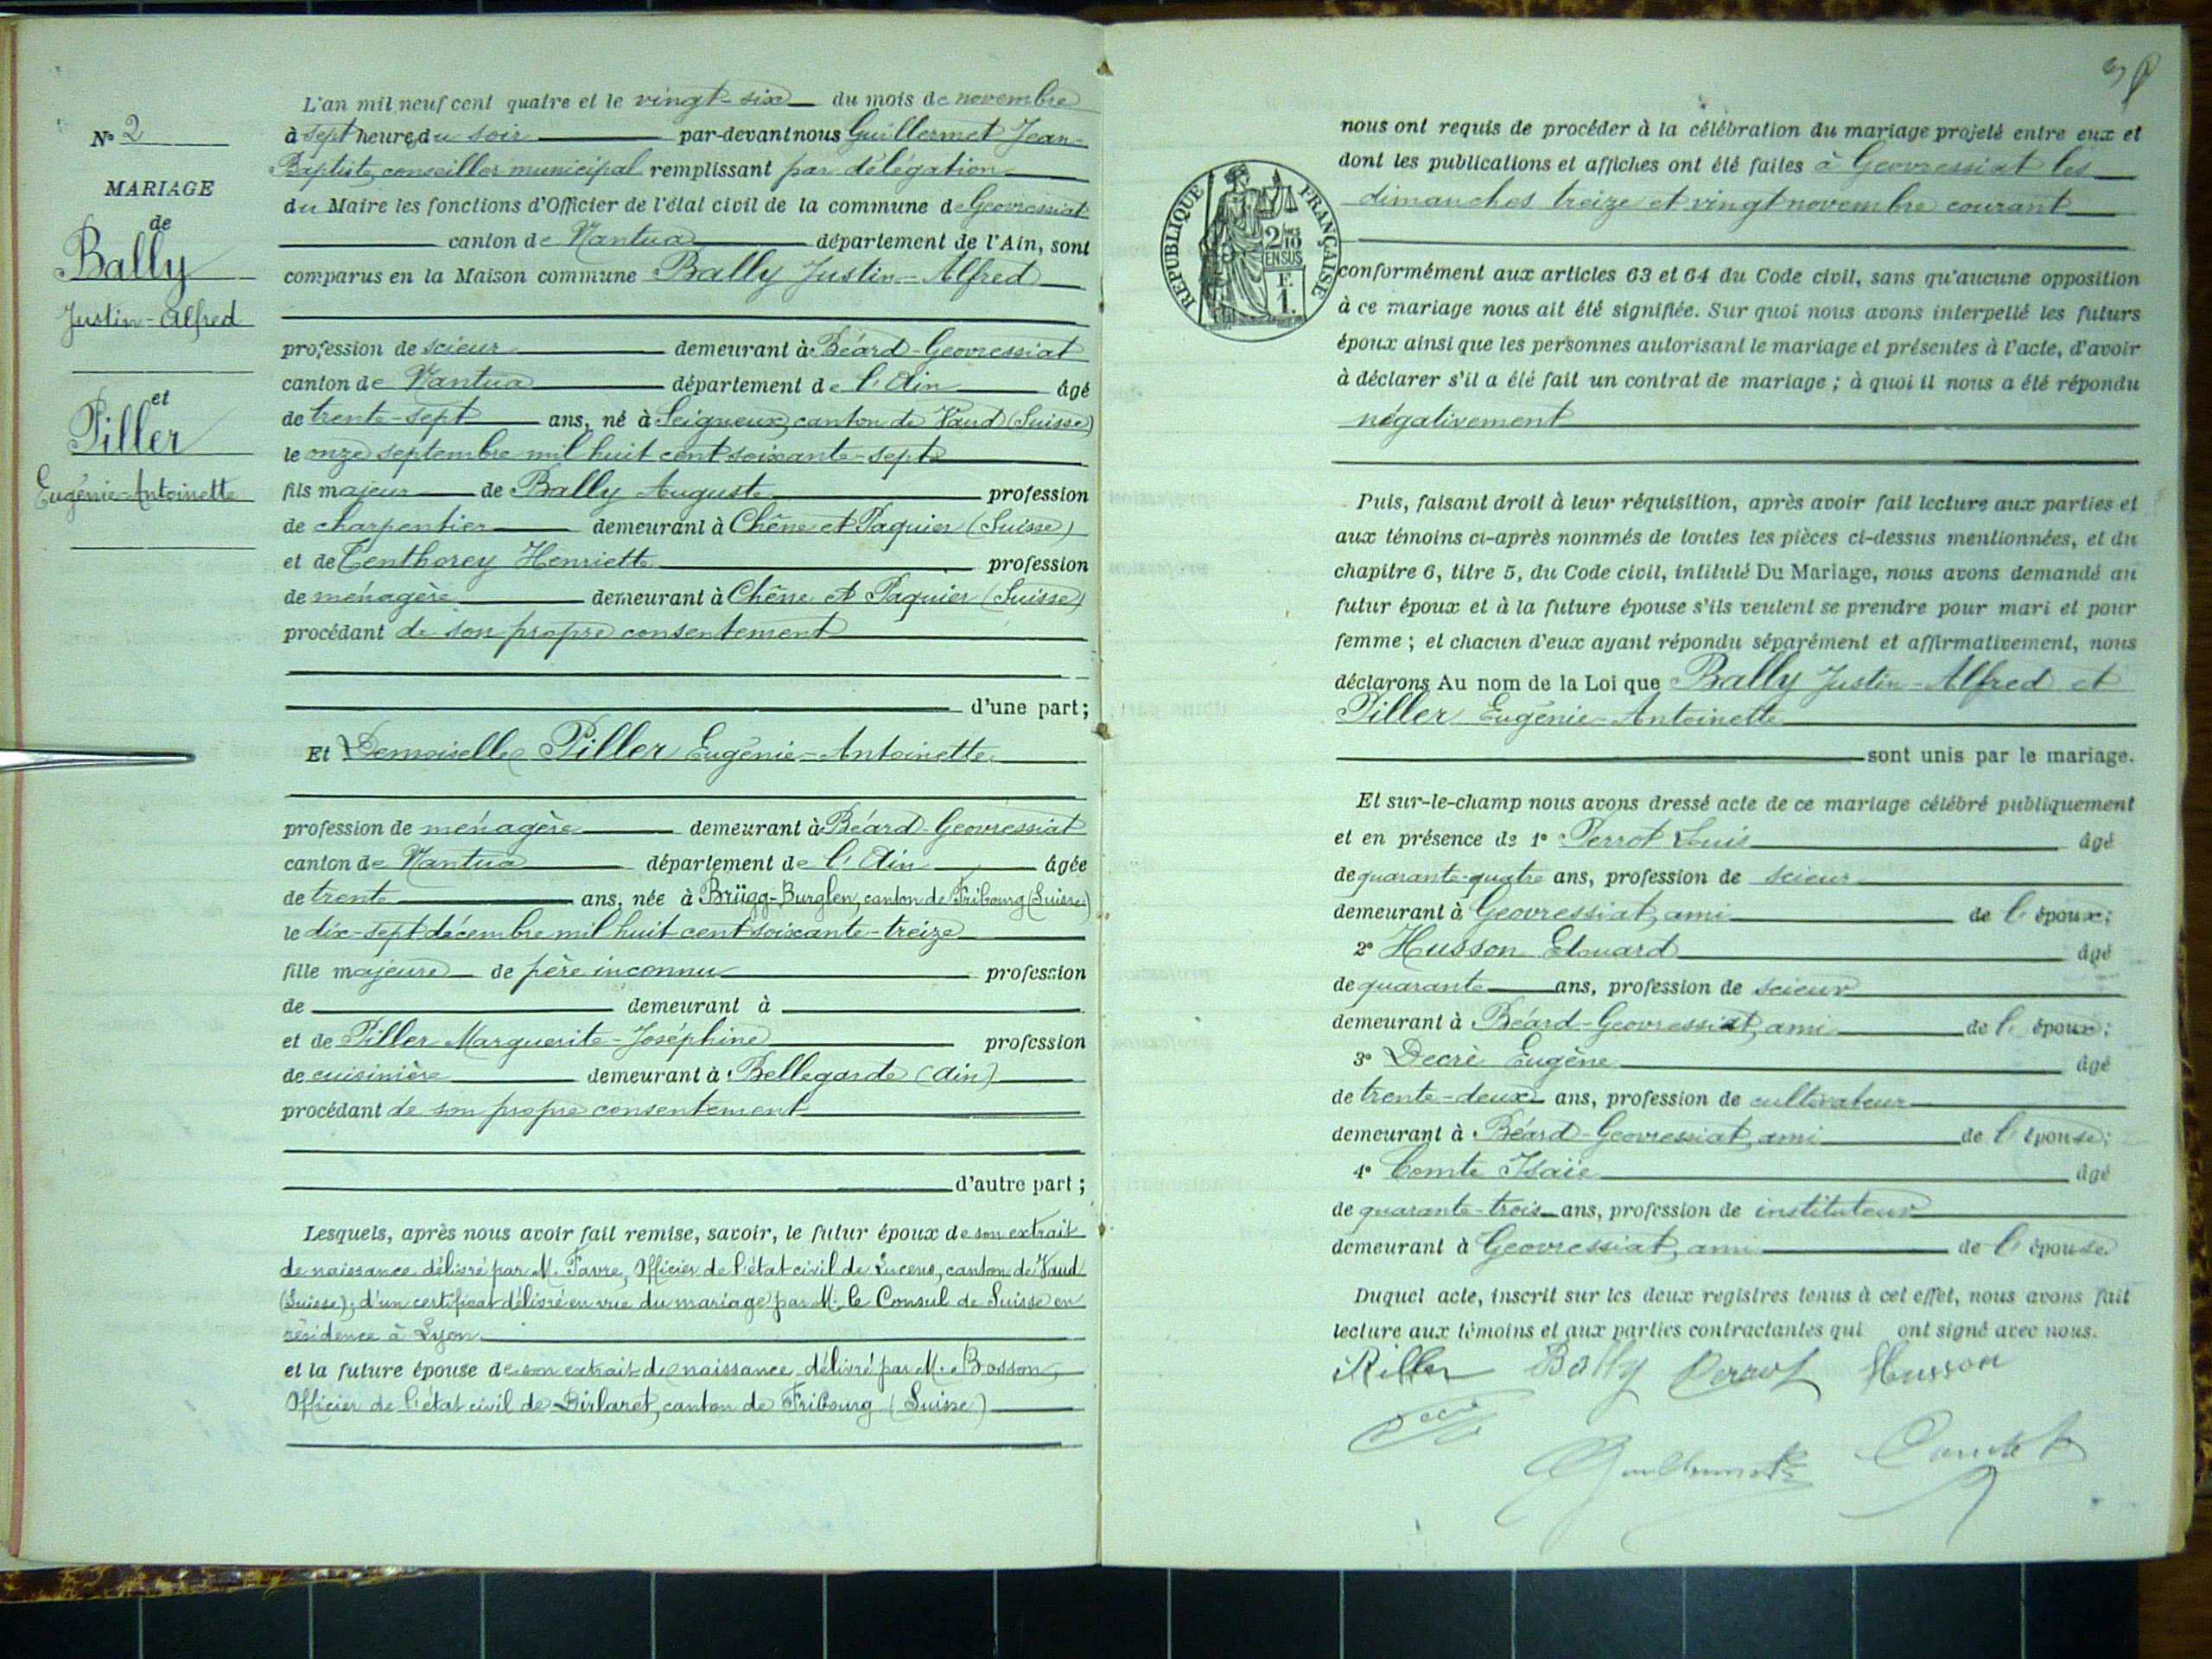 N° 2
MARIAGE
de
Bally
Justin-Alfred
et
Piller
Eugénie-Antoinette
L'an mil neuf cent quatre et le vingt-six du mois de novembre
à sept heures du soir par-devant nous Guillermet Jean-
Baptiste, conseiller municipal remplissant par délégation
du Maire les fonctions d'Officier de l'état civil de la commune de Geovressiat
canton de Nantua département de l'Ain, sont
comparus en la Maison commune Bally Justin-Alfred
profession de scieur demeurant à Béard-Geovressiat
canton de Nantua département de l'Ain âgé
de trente-sept ans, né à Seigneux, canton de Vaud (Suisse)
le onze septembre mil huit cent soixante-sept
fils majeur de Bally Auguste profession
de charpentier demeurant à Chêne et Paquier (Suisse)
et de Tenthorey Henriette profession
de ménagère demeurant à Chêne et Paquier (Suisse)
procédant de son propre consentement
d'une part;
Et Demoiselle Piller Eugénie-Antoinette
profession de ménagère demeurant à Béard-Geovressiat
canton de Nantua département de l'Ain âgée
de trente ans, née à Brügg-Burglen, canton de Fribourg (Suisse)
le dix-sept décembre mil huit cent soixante-treize
fille majeure de père inconnu profession
de demeurant à
et de Piller Marguerite-Joséphine profession
de cuisinière demeurant à Bellegarde (Ain)
procédant de son propre consentement
d'autre part;
Lesquels, après nous avoir fait remise, savoir, le futur époux de son extrait
de naissance délivré par M. Favre, Officier de l'état civil de Lucens, canton de Vaud
(Suisse); d'un certificat délivré en vue du mariage par M. le Consul de Suisse en
résidence à Lyon
et la future épouse de son extrait de naissance délivré par M. Bosson,
Officier de l'état civil de Dirlaret, canton de Fribourg (Suisse)
REPUBLIQUE FRANÇAISE
2/10
EN SUS
F.
1.
nous ont requis de procéder à la célébration du mariage projeté entre eux et
dont les publications et affiches ont été faites à Geovressiat les
dimanches treize et vingt novembre courant
conformément aux articles 63 et 64 du Code civil, sans qu'aucune opposition
à ce mariage nous ait été signifiée. Sur quoi nous avons interpellé les futurs
époux ainsi que les personnes autorisant le mariage et présentes à l'acte, d'avoir
à déclarer s'il a été fait un contrat de mariage; à quoi il nous a été répondu
négativement
Puis, faisant droit à leur réquisition, après avoir fait lecture aux parties et
aux témoins ci-après nommés de toutes les pièces ci-dessus mentionnées, et du
chapitre 6, titre 5, du Code civil, intitulé Du Mariage, nous avons demandé au
futur époux et à la future épouse s'ils veulent se prendre pour mari et pour
femme; et chacun d'eux ayant répondu séparément et affirmativement, nous
déclarons Au nom de la Loi que Bally Justin-Alfred et
Piller Eugénie-Antoinette
sont unis par le mariage.
Et sur-le-champ nous avons dressé acte de ce mariage célébré publiquement
et en présence de 1° Perrot Louis âgé
de quarante-quatre ans, profession de scieur
demeurant à Geovressiat, ami de l'époux;
2° Husson Edouard âgé
de quarante ans, profession de scieur
demeurant à Béard-Geovressiat, ami de l'époux;
3° Decré Eugène âgé
de trente-deux ans, profession de cultivateur
demeurant à Béard-Geovressiat, ami de l'épouse;
4° Comte Isaïe âgé
de quarante-trois ans, profession de instituteur
demeurant à Geovressiat, ami de l'épouse.
Duquel acte, inscrit sur les deux registres tenus à cet effet, nous avons fait
lecture aux témoins et aux parties contractantes qui ont signé avec nous.
Piller Bally Perrot Husson
Guillermet